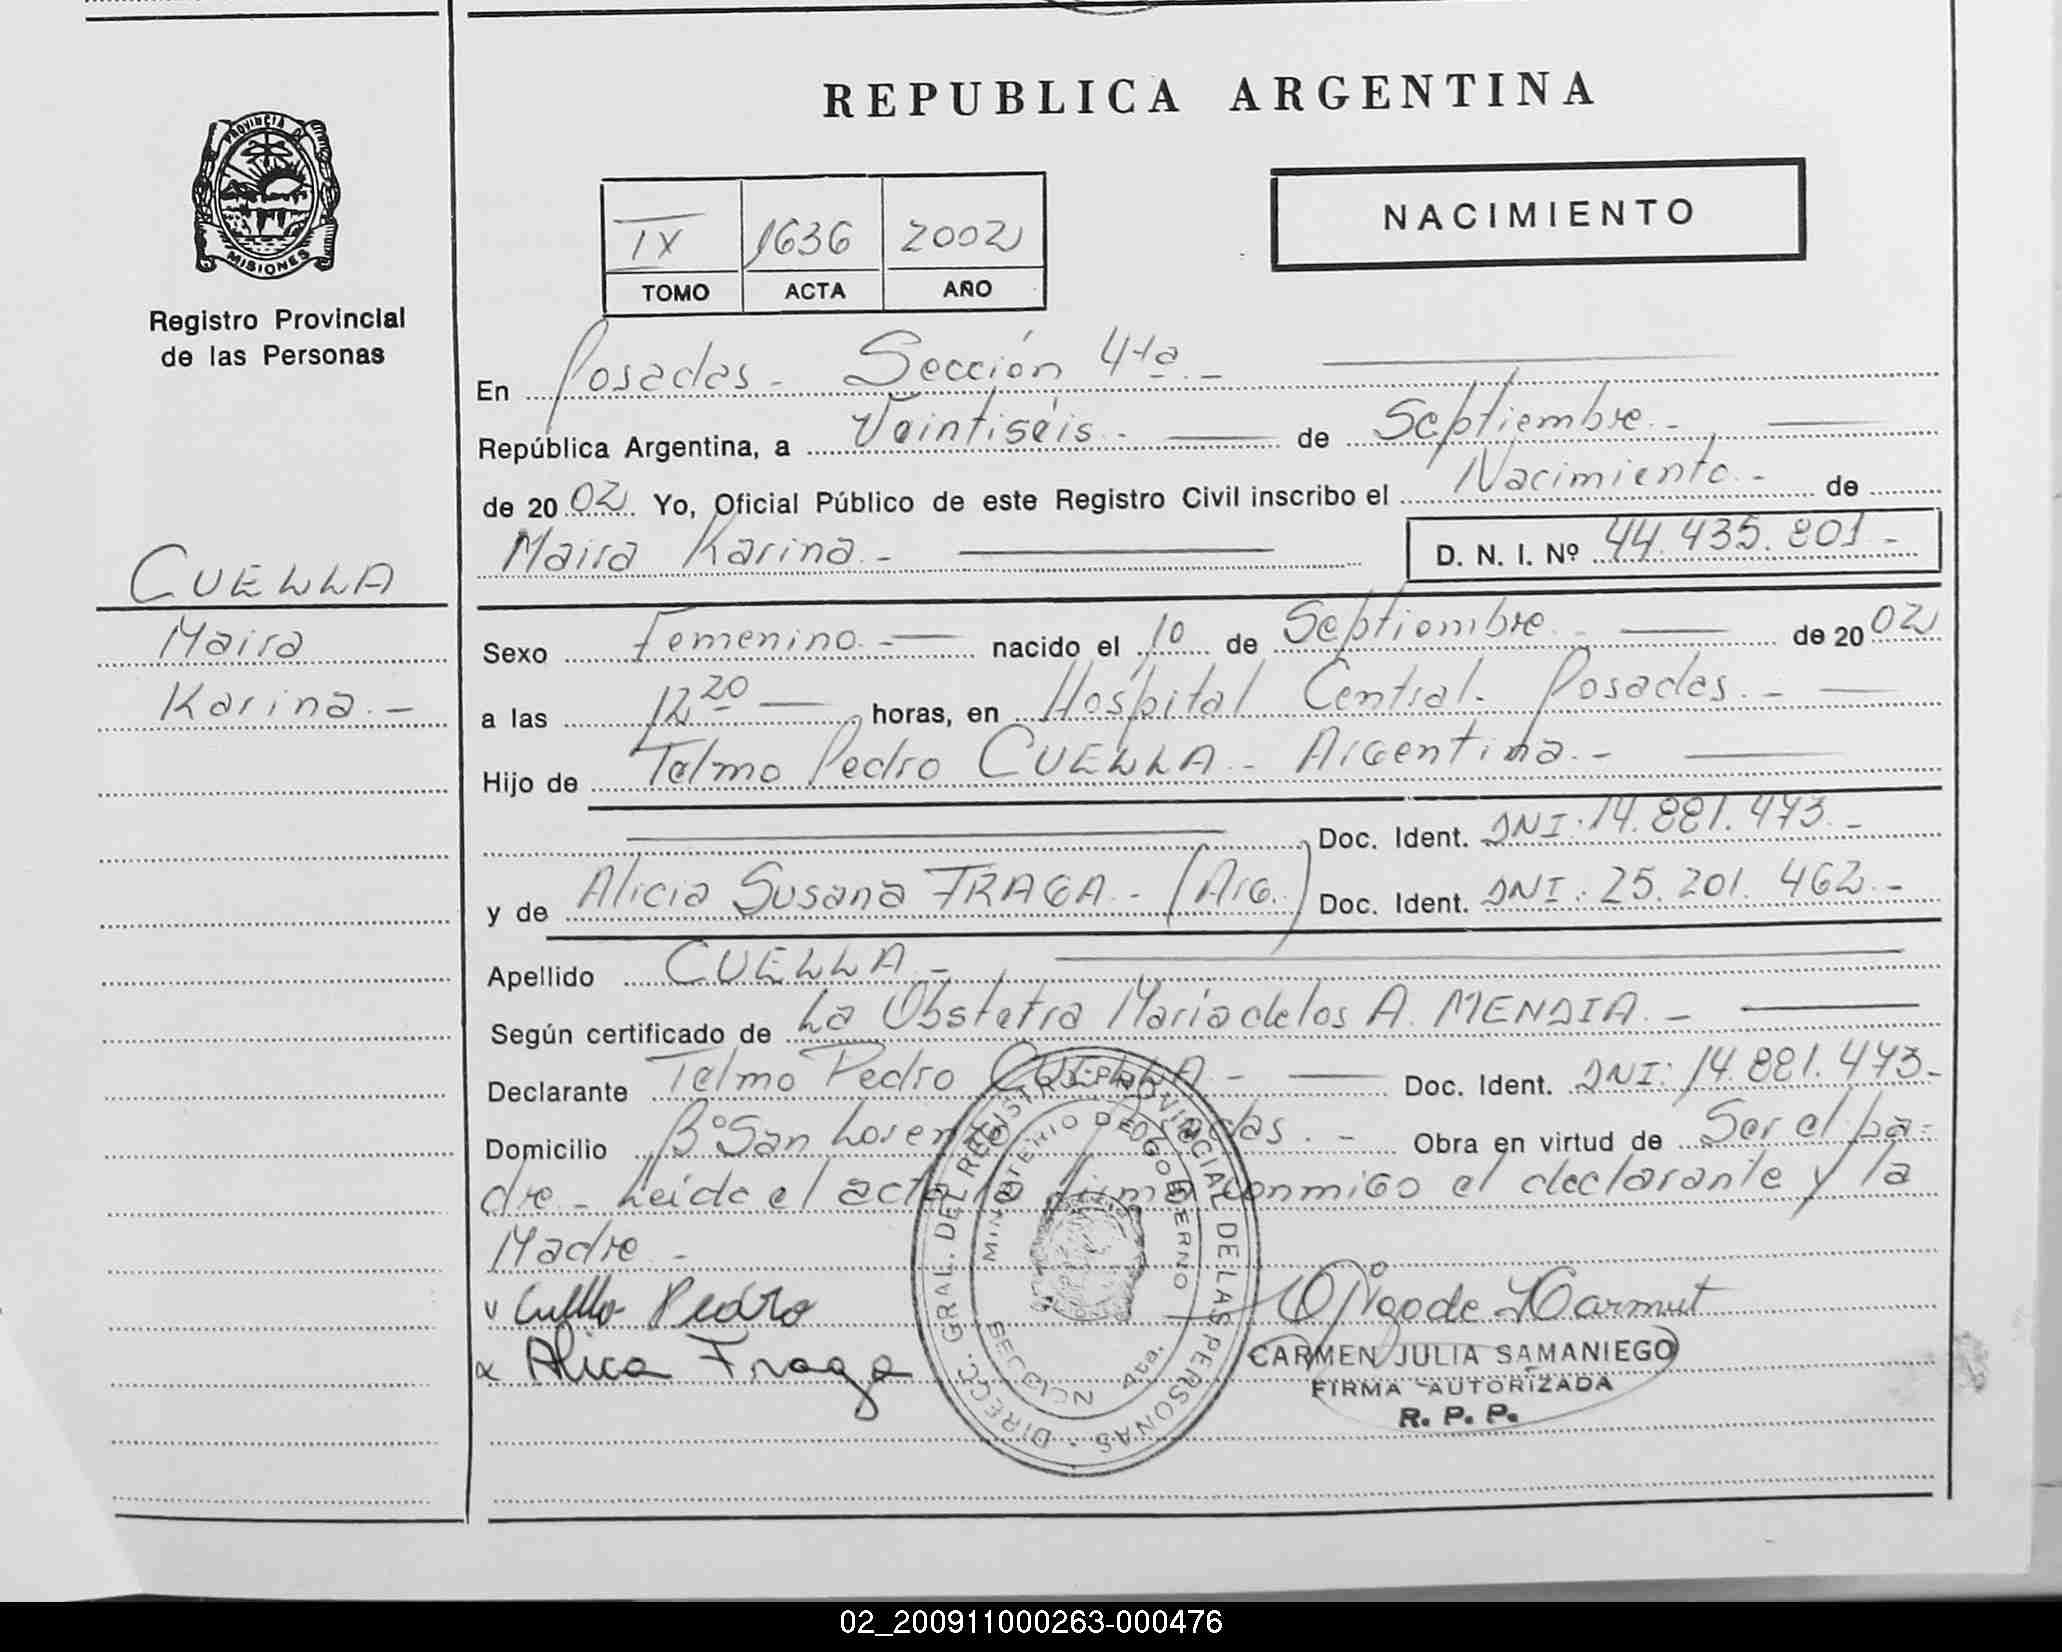 REPUBLICA ARGENTINA
PROVINCIA DE MISIONES
Registro Provincial
de las Personas
IX 1636 2002
TOMO ACTA AÑO
NACIMIENTO
En Posadas - Sección 4ta -
República Argentina, a Veintiséis - de Septiembre -
de 2002 Yo, Oficial Público de este Registro Civil inscribo el Nacimiento - de
Maira Karina - D. N. I. Nº 44.435.801 -
CUELLA
Maira
Karina. -
Sexo Femenino - nacido el 10 de Septiembre - de 2002
a las 12 20 horas, en Hospital Central - Posadas. -
Hijo de Telmo Pedro CUELLA - Argentina. -
Doc. Ident. DNI: 14.881.473. -
y de Alicia Susana FRAGA. - (Arg.) Doc. Ident. DNI: 25.201.462. -
Apellido CUELLA -
Según certificado de La Obstetra María de los A. MENDIA. -
Declarante Telmo Pedro CUELLA - Doc. Ident. DNI: 14.881.473 -
Domicilio Bº San Lorenzo Posadas. - Obra en virtud de Ser el pa-
dre - Leída el acta la firman conmigo el declarante y la
Madre -
Cuella Pedro
Alica Fraga
DIRECC. GRAL. DEL REGISTRO PROVINCIAL DE LAS PERSONAS
MINISTERIO DE GOBIERNO
SECCION 4ta.
CARMEN JULIA SAMANIEGO
FIRMA AUTORIZADA
R. P. P.
02_200911000263-000476